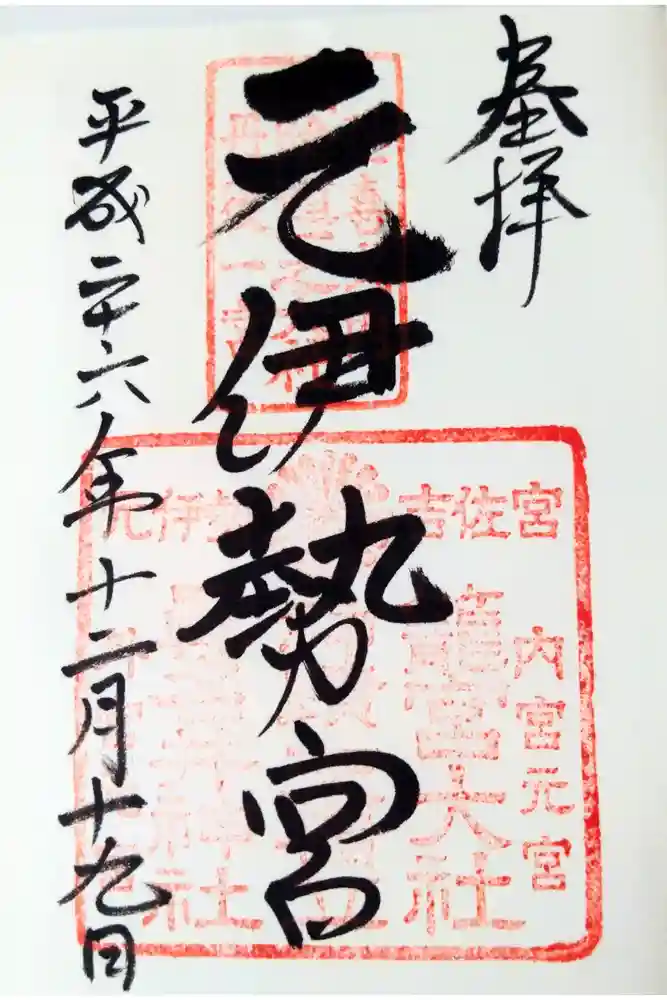 奉拝
元伊勢宮
平成二十六年十二月十九日
元伊勢
吉佐宮
内宮元宮
籠宮大社